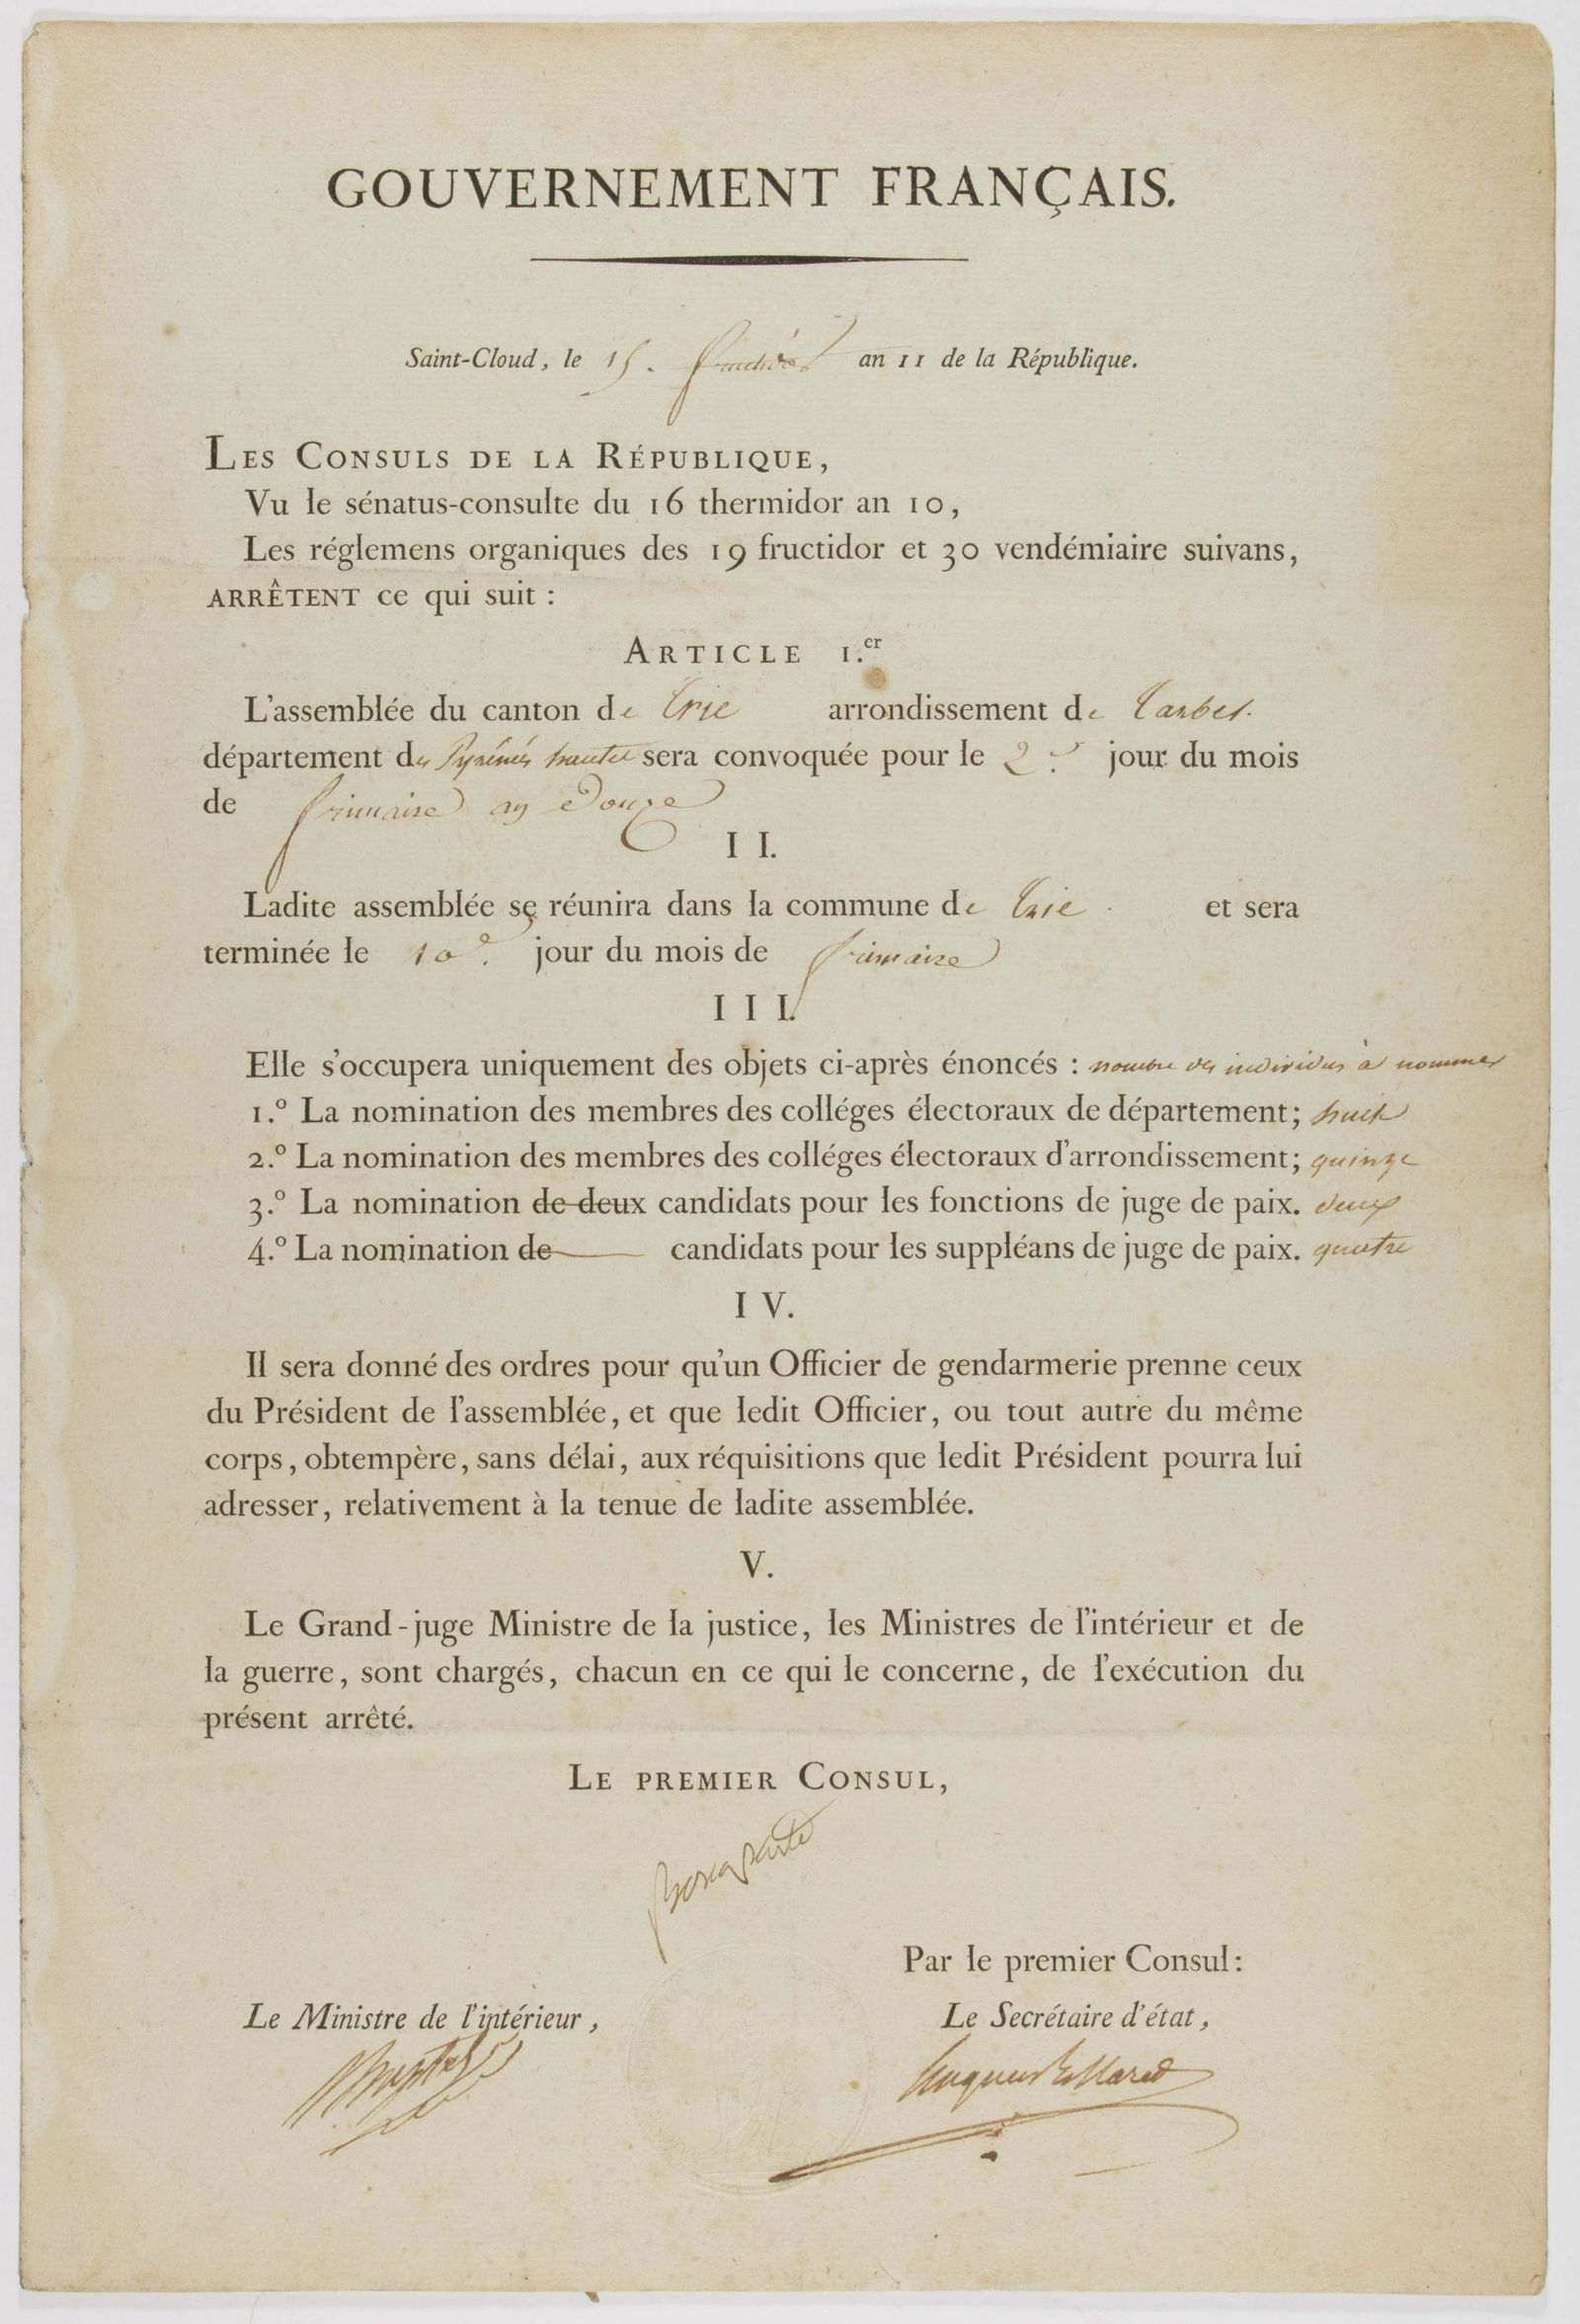 GOUVERNEMENT FRANÇAIS.
Saint-Cloud, le 15. fructidor an 11 de la République.
LES CONSULS DE LA RÉPUBLIQUE,
Vu le sénatus-consulte du 16 thermidor an 10,
Les réglemens organiques des 19 fructidor et 30 vendémiaire suivans,
ARRÊTENT ce qui suit :
ARTICLE 1.er
L'assemblée du canton de Trie arrondissement de Tarbes.
département des Pyrénées hautes sera convoquée pour le 2.e jour du mois
de frimaire an Douze
II.
Ladite assemblée se réunira dans la commune de Trie. et sera
terminée le 10e. jour du mois de frimaire
III.
Elle s'occupera uniquement des objets ci-après énoncés : nombre des individus à nommer
1.º La nomination des membres des colléges électoraux de département; huit
2.º La nomination des membres des colléges électoraux d'arrondissement; quinze
3.º La nomination de deux candidats pour les fonctions de juge de paix. deux
4.º La nomination de candidats pour les suppléans de juge de paix. quatre
IV.
Il sera donné des ordres pour qu'un Officier de gendarmerie prenne ceux
du Président de l'assemblée, et que ledit Officier, ou tout autre du même
corps, obtempère, sans délai, aux réquisitions que ledit Président pourra lui
adresser, relativement à la tenue de ladite assemblée.
V.
Le Grand-juge Ministre de la justice, les Ministres de l'intérieur et de
la guerre, sont chargés, chacun en ce qui le concerne, de l'exécution du
présent arrêté.
LE PREMIER CONSUL,
Bonaparte
Par le premier Consul:
Le Ministre de l'intérieur,
Le Secrétaire d'état,
Chaptal
Hugues B. Maret